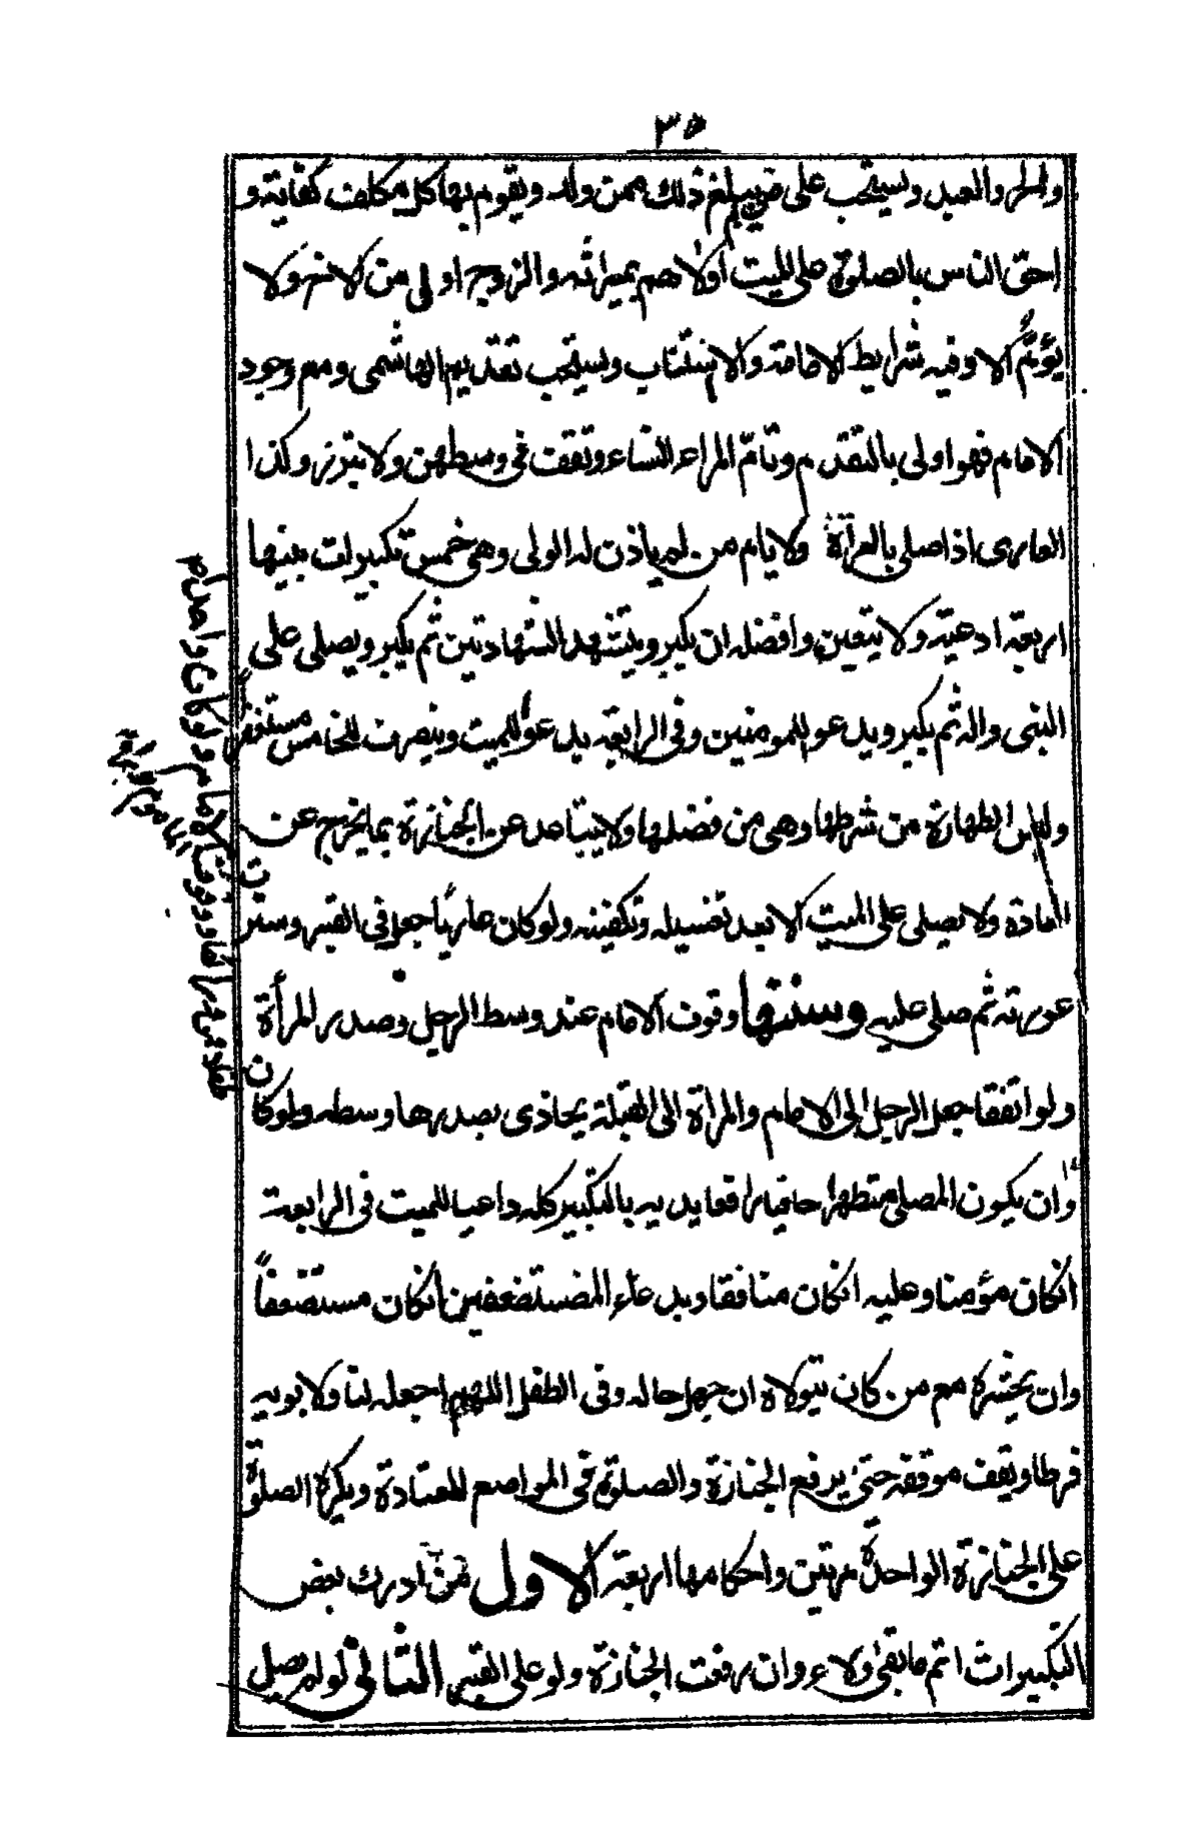 ٣٥
والحر والعبد ويستحب على من لم يبلغ ذلك ممن ولد ويقوم بها كل مكلف كفاية و
احق الناس بالصلوة على الميت اولاهم بميراثه والزوج اولى من الاخ ولا
يؤم الا وفيه شرايط الامامة والا استناب ويستحب تقديم الهاشمى ومع وجود
الامام فهو اولى بالتقدم وتام المراءة النساء وتقف فى وسطهن ولا تبرز وكذا
العارى اذا صلى بالعراة ولا يام من لم ياذن له الولى وهى خمس تكبيرات بينها
اربعة ادعية ولا يتعين وافضله ان يكبر ويتشهد الشهادتين ثم يكبر ويصلى على
النبى واله ثم يكبر ويدعو للمومنين وفى الرابعة يدعو للميت وينصرف للخامس مستغفراً
وليس الطهارة من شرطها وهى من فضلها ولا يتباعد عن الجنازة بما يخرج عن
العادة ولا يصلى على الميت الا بعد تغسيله وتكفينه ولو كان عارياً جعل فى القبر وستر
عورته ثم صلى عليه وسننها وقوف الامام عند وسط الرجل وصدر المرأة
ولو اتفقا جعل الرجل الى الامام والمرأة الى القبلة يحاذى بصدرها وسطه ولو كان
وان يكون المصلى متطهرا حافيا رافعا يديه بالتكبير كله داعيا للميت فى الرابعة
انكان مؤمنا وعليه انكان منافقا وبدعاء المستضعفين انكان مستضعفاً
وان يحشره مع من كان يتولاه ان جهل حاله وفى الطفل اللهم اجعله لنا ولابويه
فرطا ويقف موقفه حتى يرفع الجنازة والصلوة فى المواضع المعتادة ويكره الصلوة
على الجنازة الواحدة مرتين واحكامها اربعة الاول من ادرك بعض
التكبيرات اتم ما بقى ولاء وان رفعت الجنازة ولو على القبر الثانى لو لم يصل